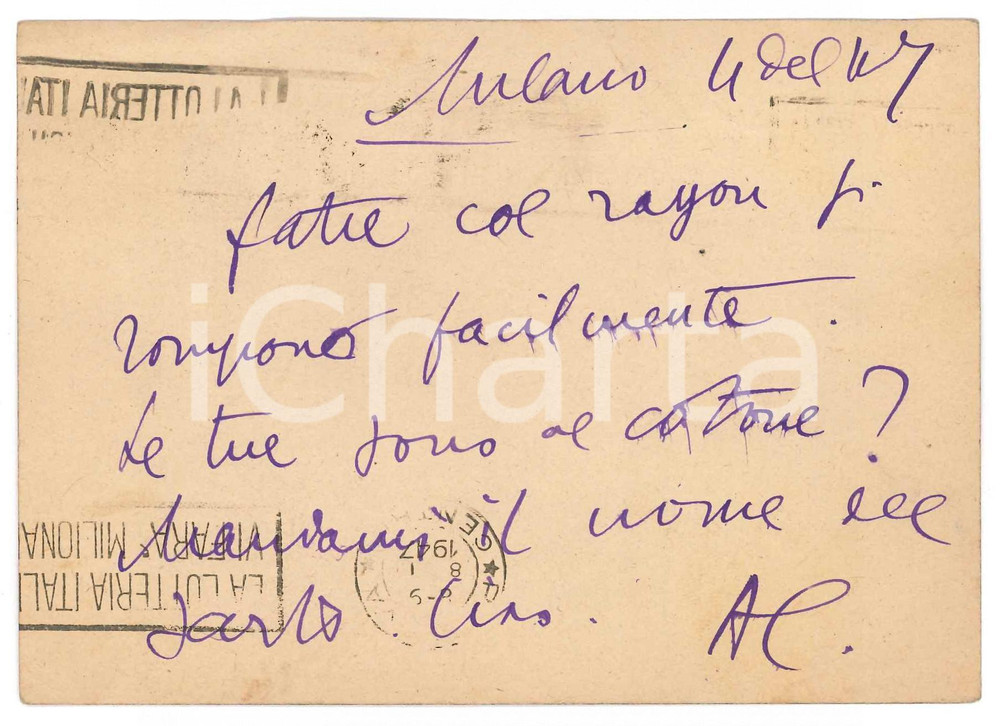 Milano 4 del 47
fatte col rayon si
rompono facilmente.
Le tue sono di cotone?
Mandami il nome del
sarto. Ciao. AC.
LA LOTTERIA ITA
LA LOTTERIA ITALI
VI FARA' MILIONA
8-9
8 - 1
1947
iCharta